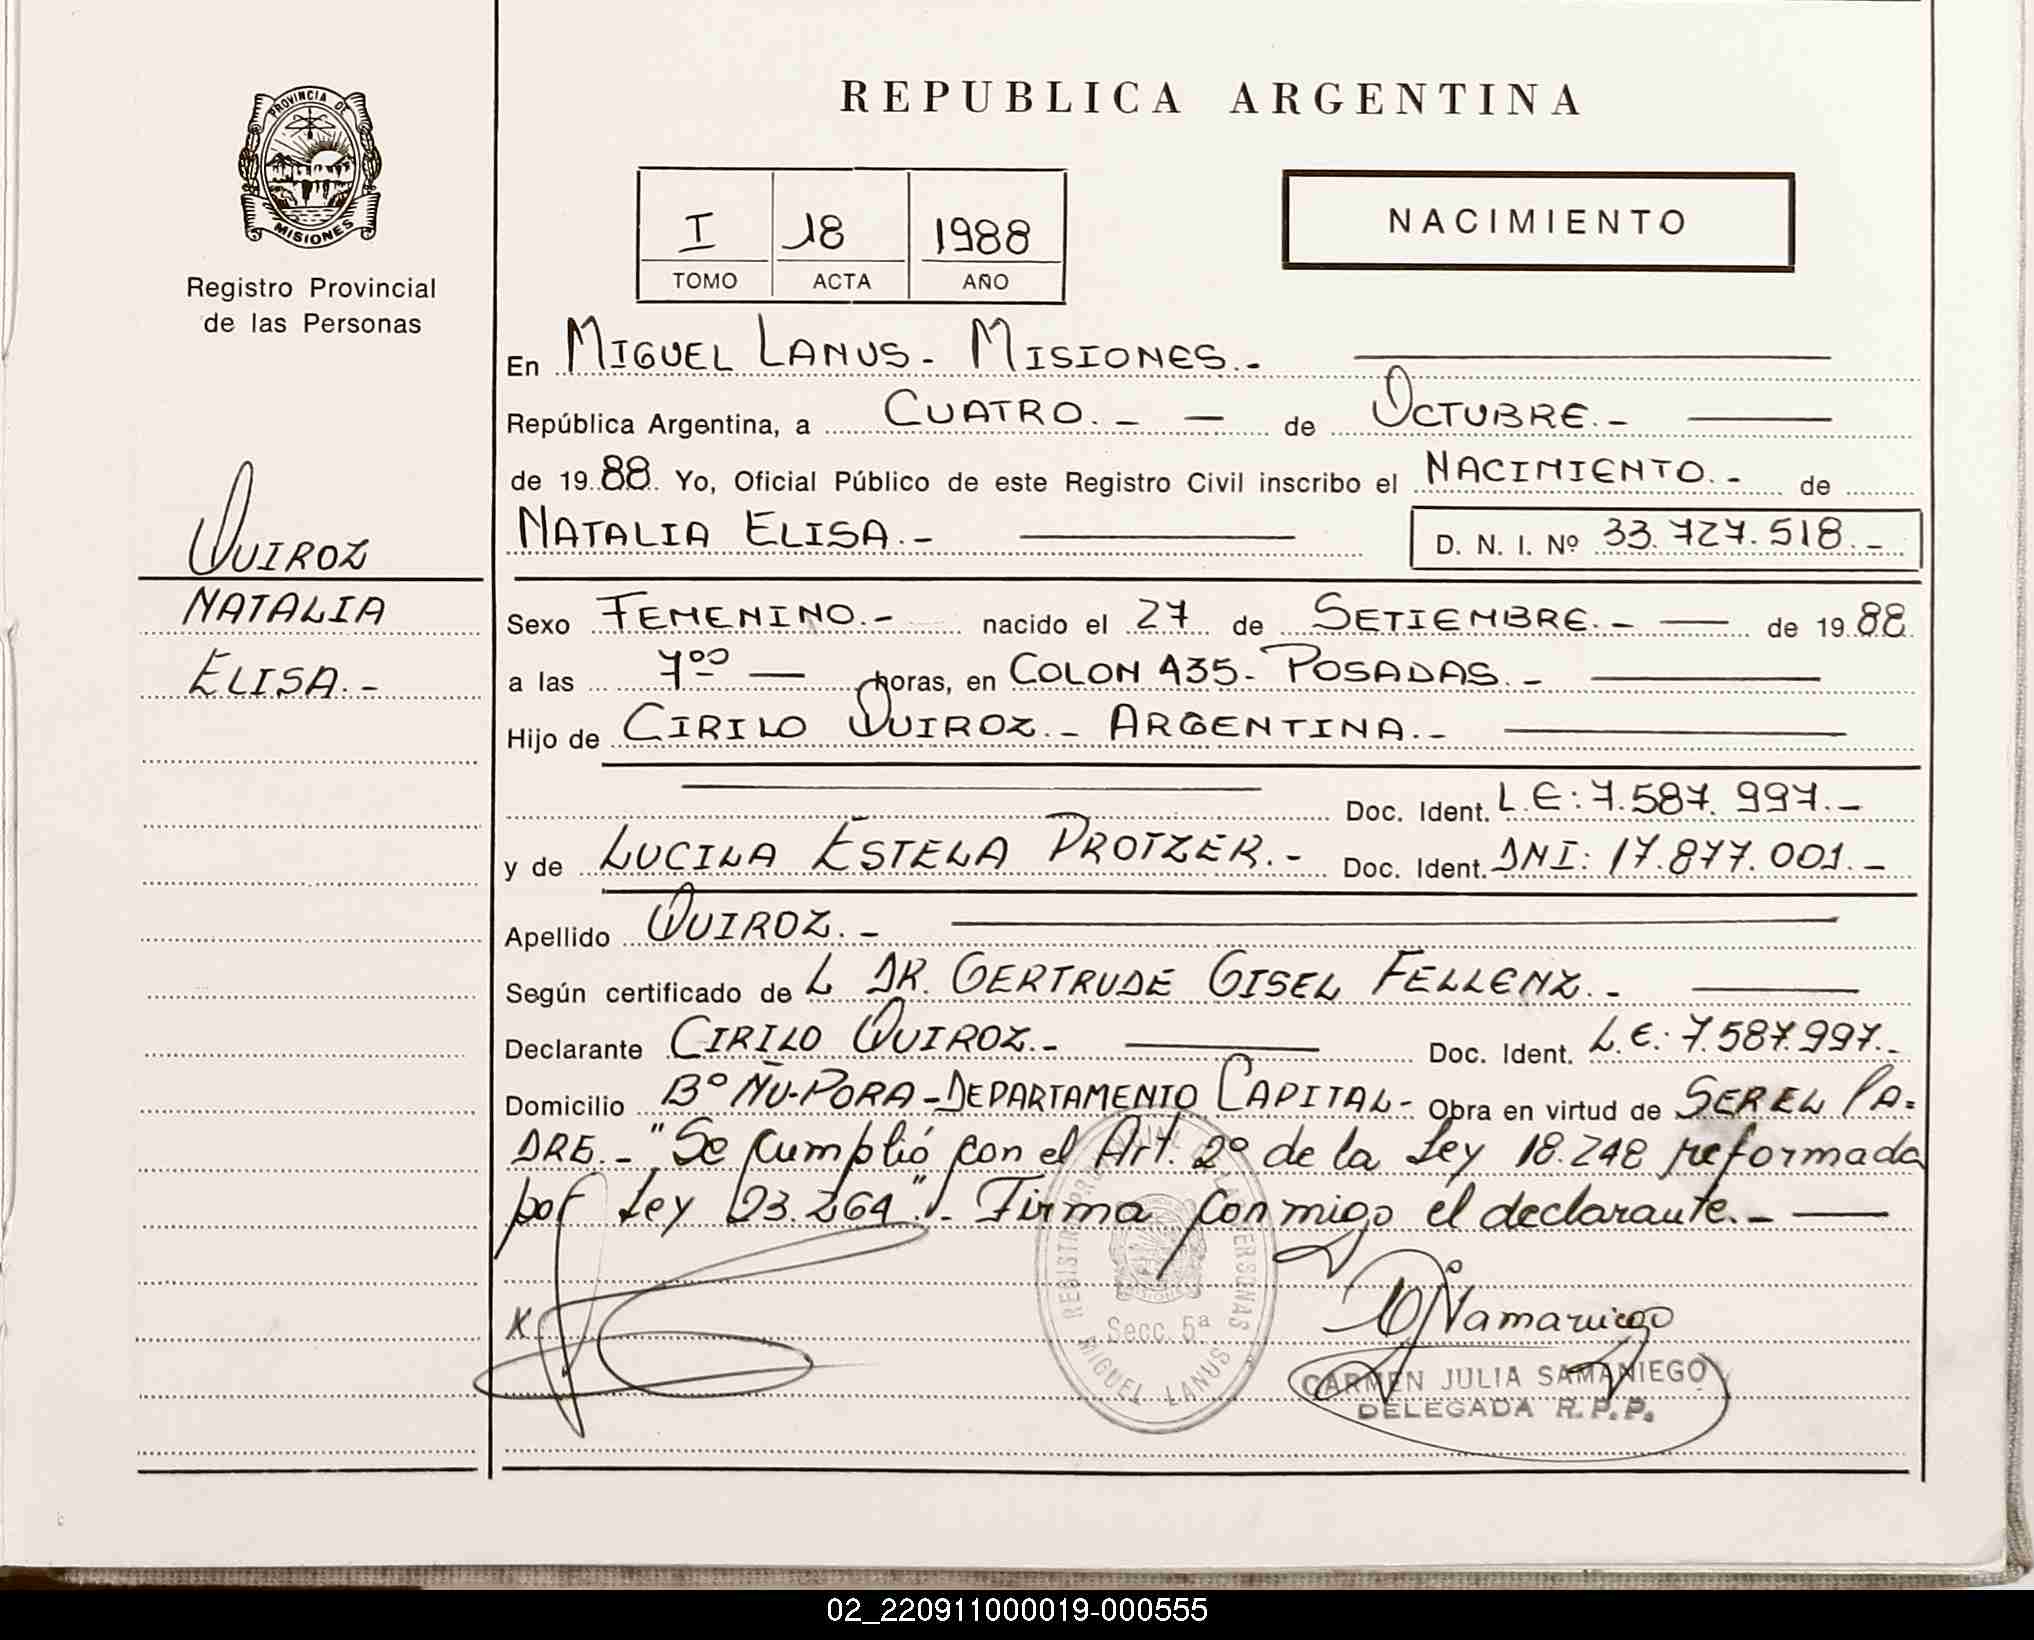 REPUBLICA ARGENTINA
PROVINCIA DE
MISIONES
Registro Provincial
de las Personas
I 18 1988
TOMO ACTA AÑO
NACIMIENTO
En MIGUEL LANUS.- MISIONES.-
República Argentina, a CUATRO.- — de OCTUBRE.-
de 19 88 Yo, Oficial Público de este Registro Civil inscribo el NACIMIENTO.- de
NATALIA ELISA.- D. N. I. Nº 33.727.518.-
QUIROZ
NATALIA
ELISA.-
Sexo FEMENINO.- nacido el 27 de SETIEMBRE.- — de 19 88
a las 7⁰⁰ — horas, en COLON 435- POSADAS.-
Hijo de CIRILO QUIROZ.- ARGENTINA.-
Doc. Ident. L.E: 7.587.997.-
y de LUCILA ESTELA PROTZER.- Doc. Ident. DNI: 17.877.001.-
Apellido QUIROZ.-
Según certificado de L DR. GERTRUDE GISEL FELLENZ.-
Declarante CIRILO QUIROZ.- Doc. Ident. L.E.: 7.587.997.-
Domicilio Bº ÑU-PORA-DEPARTAMENTO CAPITAL- Obra en virtud de SER EL PA=
DRE.- "Se cumplió con el Art. 2º de la Ley 18.248 reformada
por Ley 23.264".- Firma conmigo el declarante.- —
X
REGISTRO PROVINCIAL DE LAS PERSONAS
Secc. 5ª
MIGUEL LANUS
CARMEN JULIA SAMANIEGO
DELEGADA R.P.P.
02_220911000019-000555